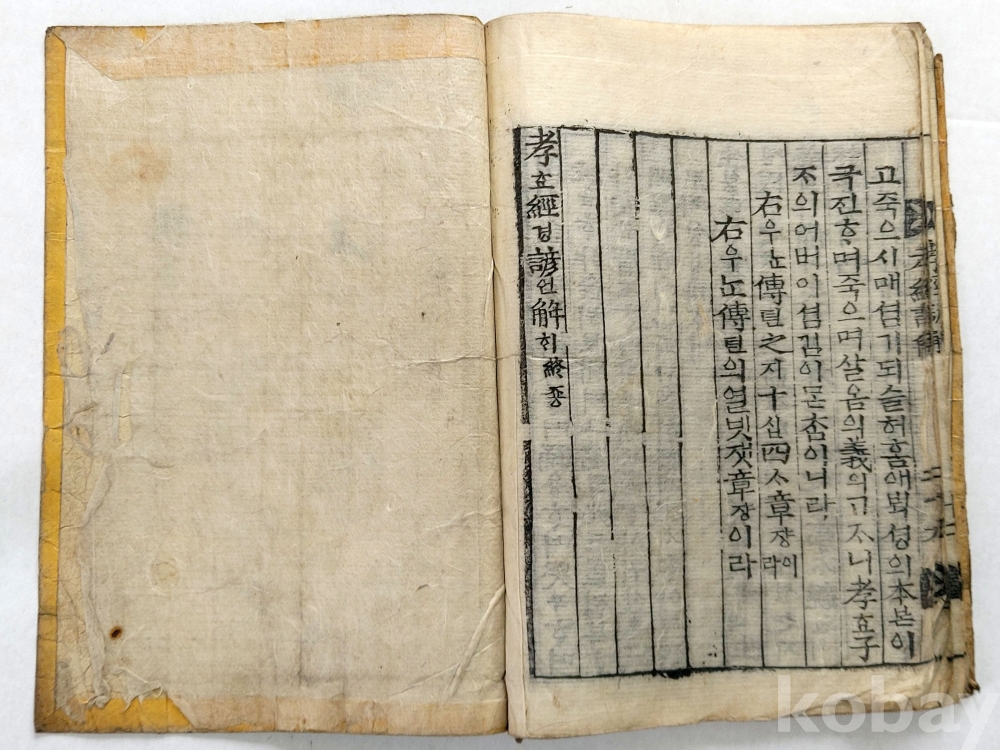 孝經諺解 二十九
고죽으시매셤기되슬허홈애ᄇᆡᆨ셩의本본이
극진ᄒᆞ며죽으며살옴의義의ᄀᆞᄌᆞ니孝효子
ᄌᆞ의어버이셤김이ᄆᆞᆮᄎᆞᆷ이니라
右우ᄂᆞᆫ傳뎐之지十십四ᄉᆞ章쟝이라
右우ᄂᆞᆫ傳뎐의열넷잿章쟝이라
孝효經경諺언解ᄒᆡ 終죵
kobay